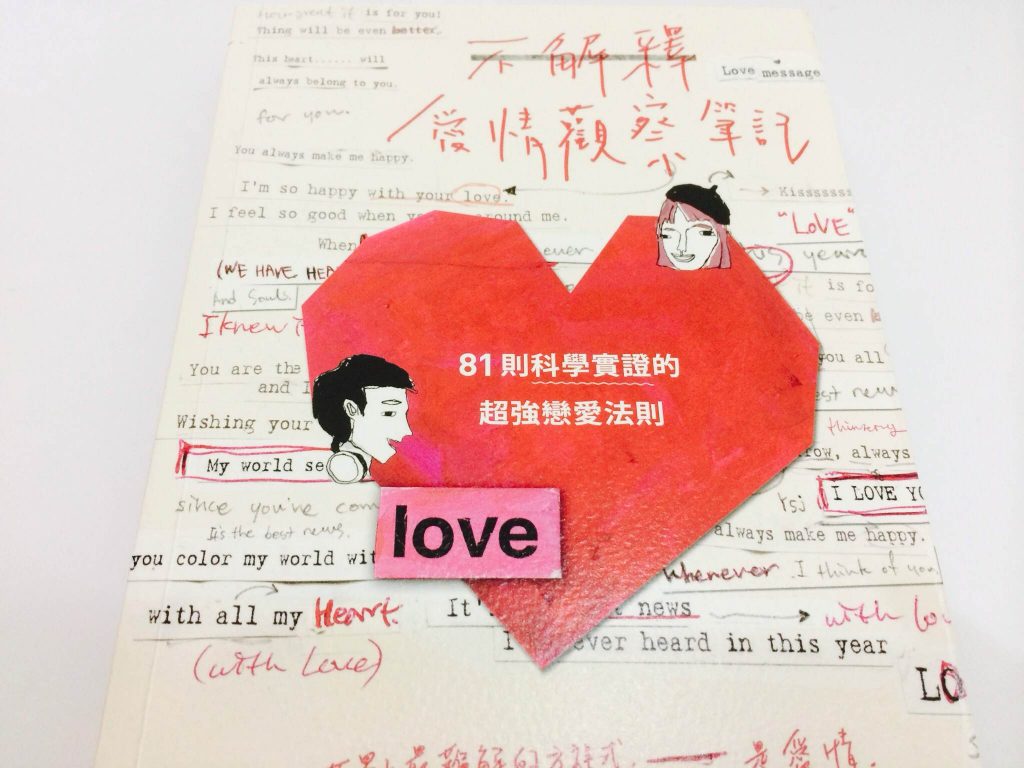 is for you!
Thing will be even better.
This heart...... will
always belong to you.
for you.
You always make me happy.
I'm so happy with your love.
I feel so good when around me.
不解釋
愛情觀察筆記
Love message
Kissssss
"LOVE"
years
When ever
(WE HAVE HEA
And Souls.
I knew
is for
be even
You are the
and I
you all
81則科學實證的
超強戀愛法則
Wishing your
My world se
since you've com
It's the best news.
you color my world wit
with all my Heart.
(with Love)
love
thinking
row, always
I LOVE YO
always make me happy.
whenever I think of you
It' news
with lov
I ever heard in this year
LO
世界上最難解的方程式，——是愛情。